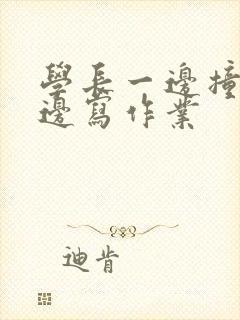 學長一邊撞
邊寫作業
迪肯